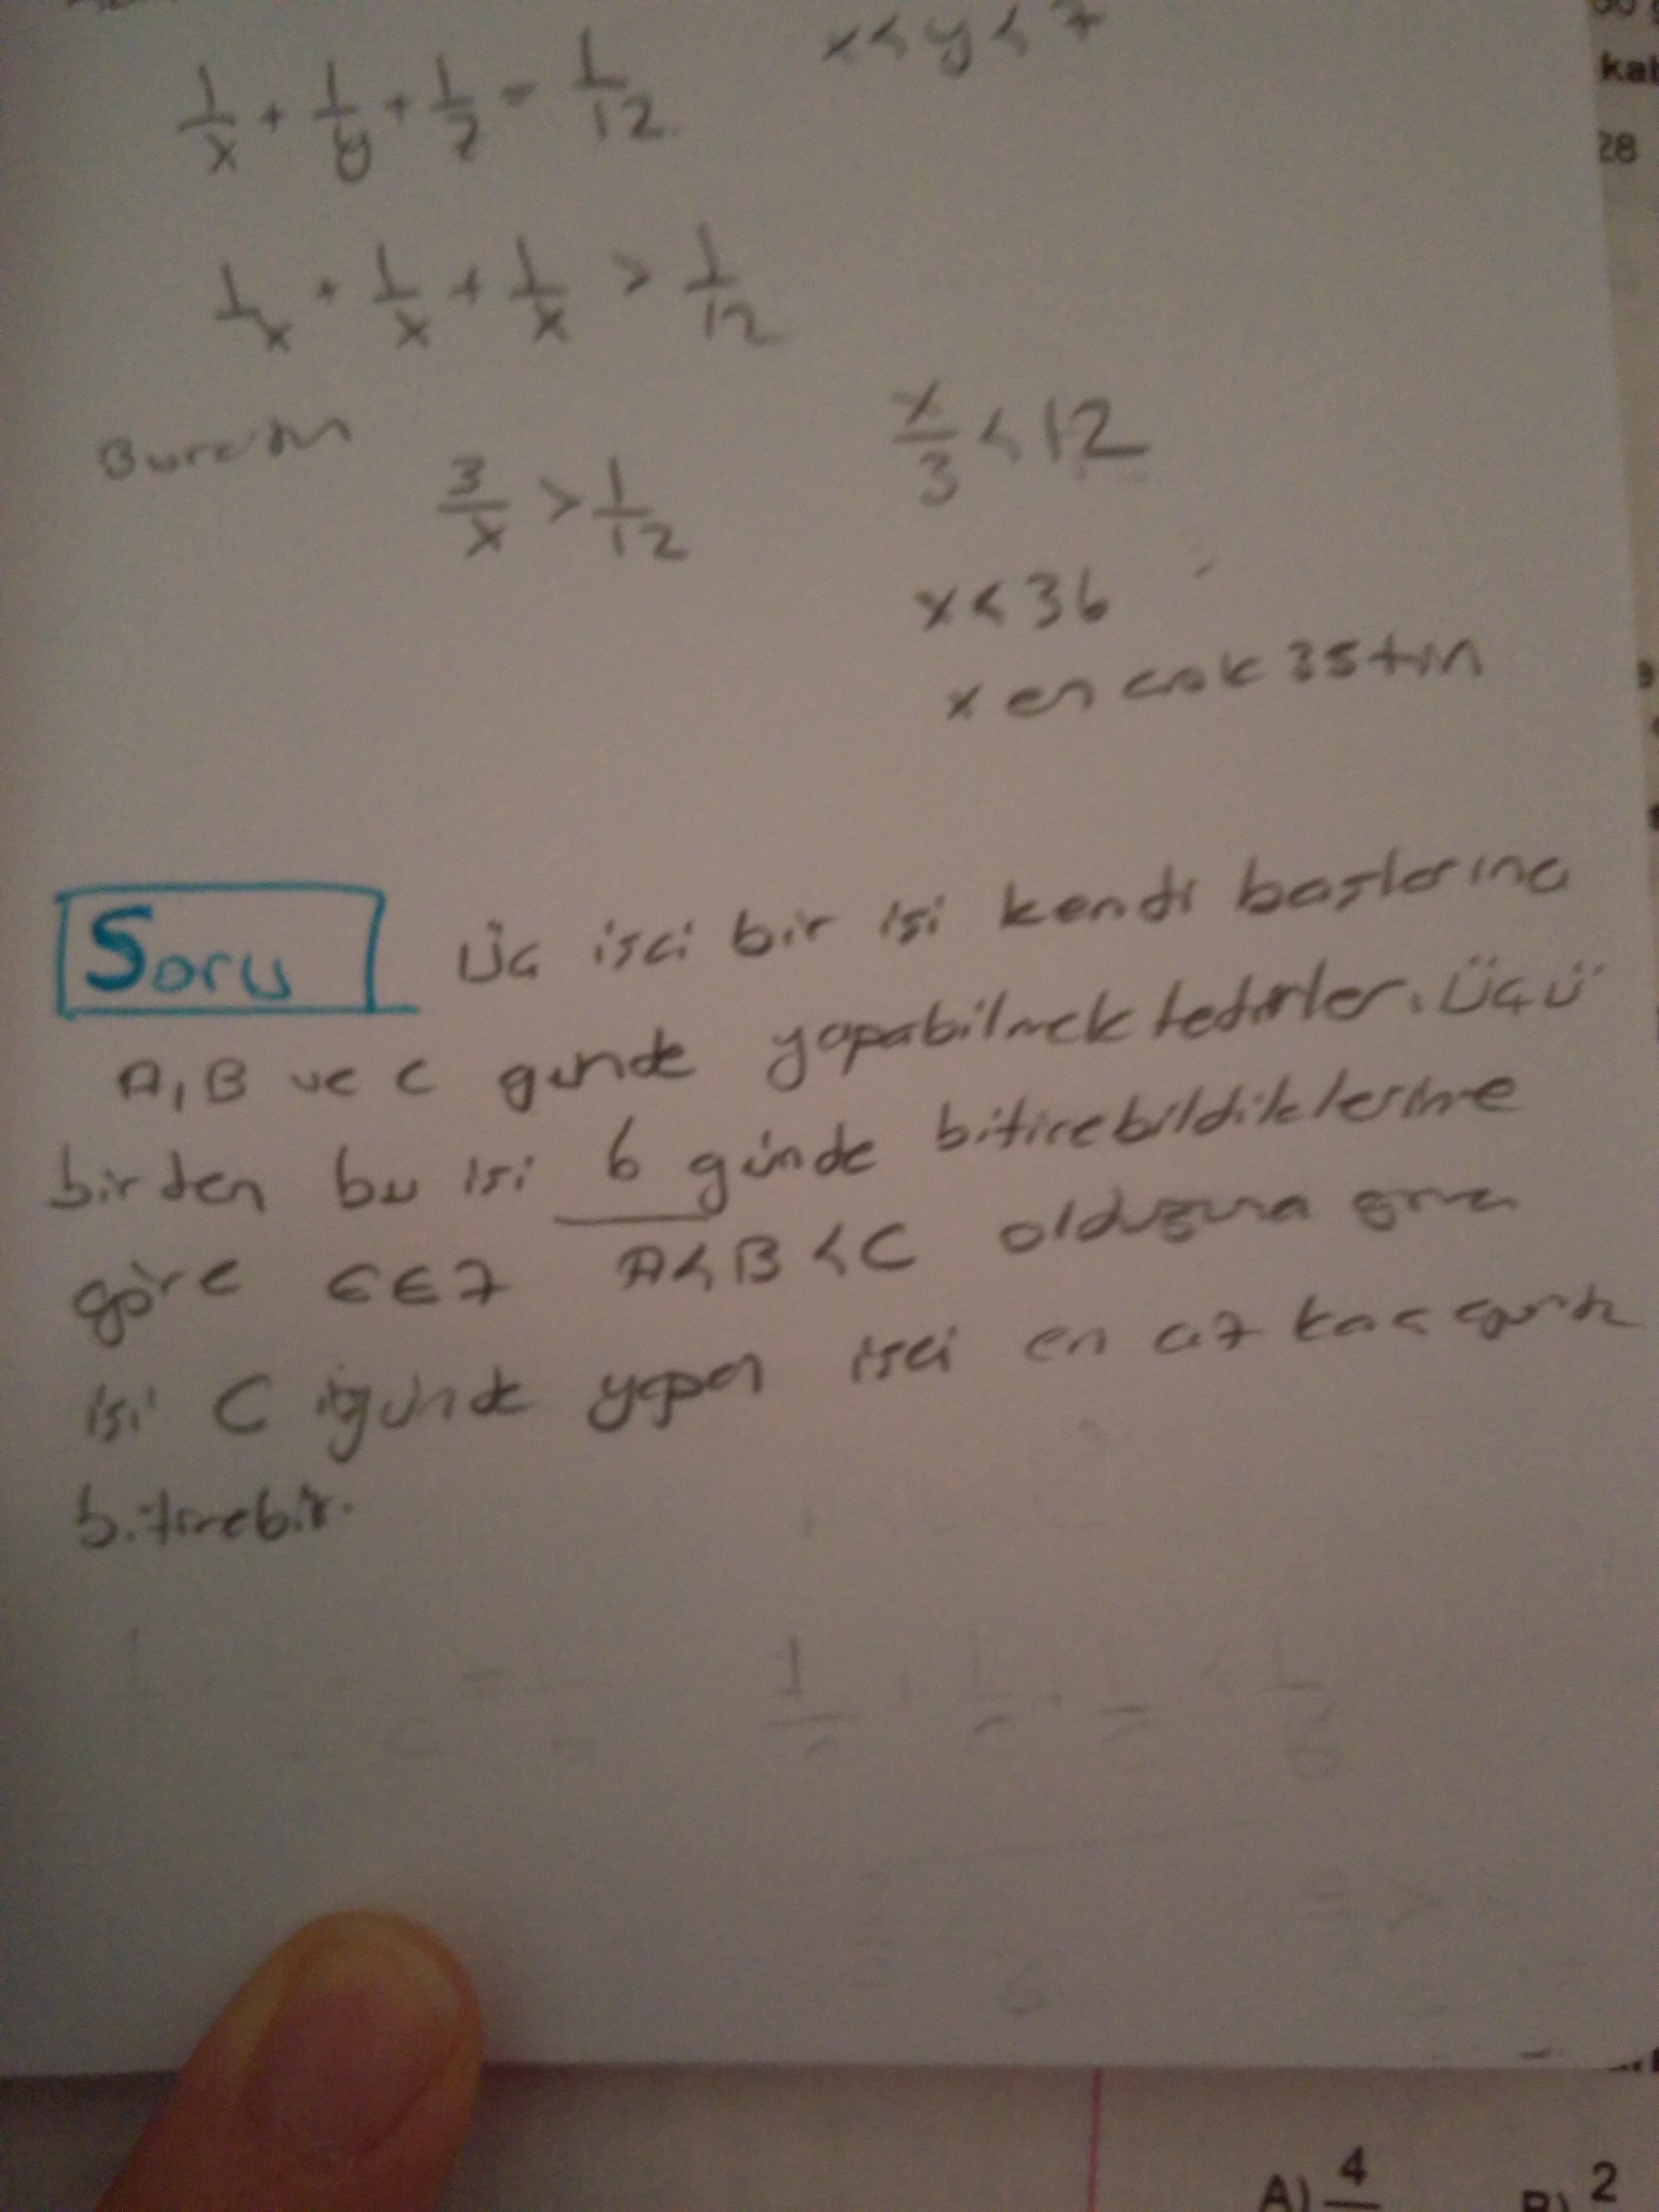 x<y<z
1/x + 1/y + 1/z = 1/12
kal
28
1/x + 1/x + 1/x > 1/12
Buradan
x/3 < 12
3/x > 1/12
x<36
x en cok 35 tın
Soru Üç işci bir işi kendi başlarına
A, B ve C günde yapabilmektedirler. Üçü
birden bu işi 6 günde bitirebildiklerine
göre CEZ A<B<C olduguna göre
işi C günde yapan işci en az kaç günde
bitirebilir.
A) 4 B) 2